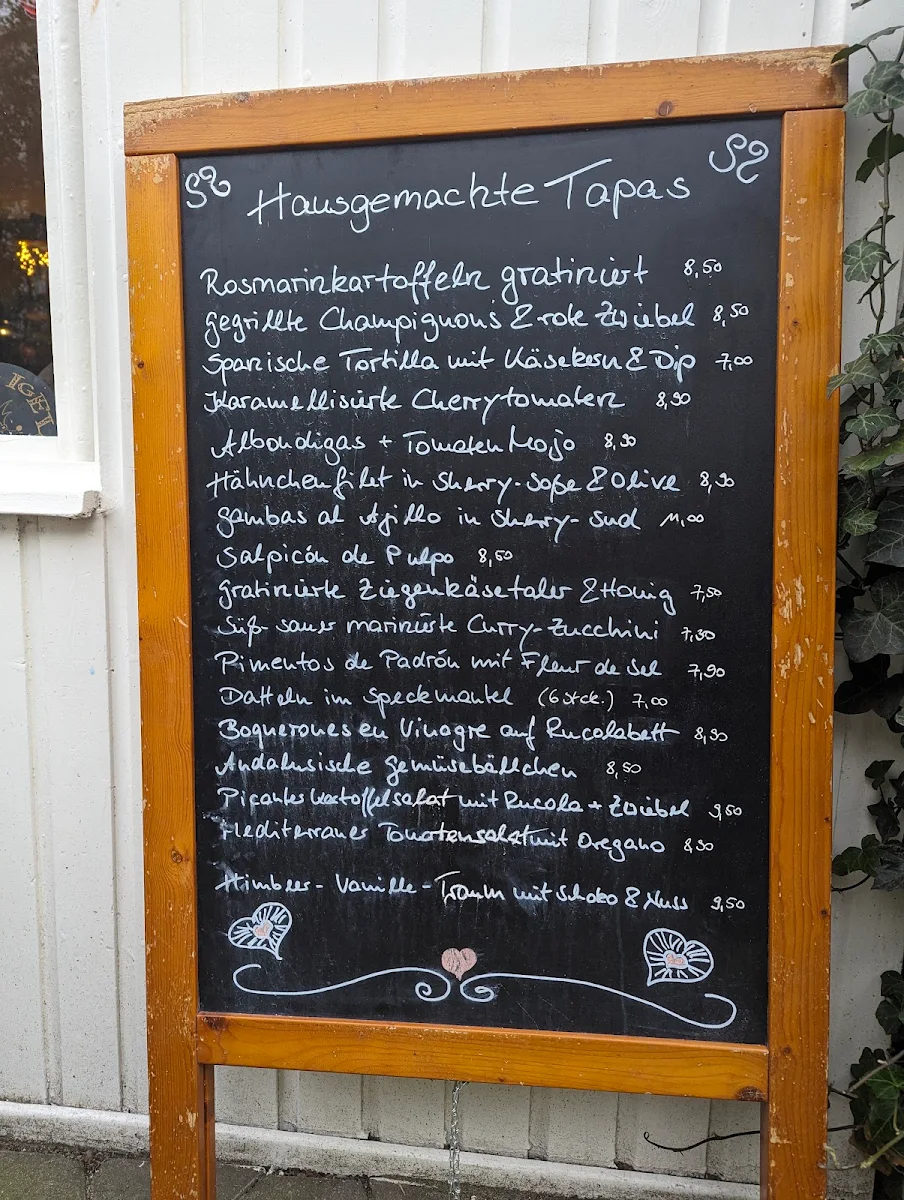 Hausgemachte Tapas
Rosmarinkartoffeln gratiniert 8,50
gegrillte Champignons & rote Zwiebel 8,50
Spanische Tortilla mit Käsekern & Dip 7,00
Karamellisierte Cherrytomaten 8,90
Albondigas + Tomaten Mojo 8,90
Hähnchenfilet in Sherry-Soße & Olive 8,90
Gambas al Ajillo in Sherry-Sud 11,00
Salpicón de Pulpo 8,50
gratinierte Ziegenkäsetaler & Honig 7,50
Süß-sauer marinierte Curry-Zucchini 7,90
Pimentos de Padrón mit Fleur de Sel 7,90
Datteln im Speckmantel (6 Stck.) 7,00
Boquerones en Vinagre auf Rucolabett 8,90
Andalusische Gemüsebällchen 8,50
Picantes Kartoffelsalat mit Rucola + Zwiebel 9,50
Mediterraner Tomatensalat mit Oregano 8,90
Himbeer-Vanille-Traum mit Schoko & Nuss 9,50